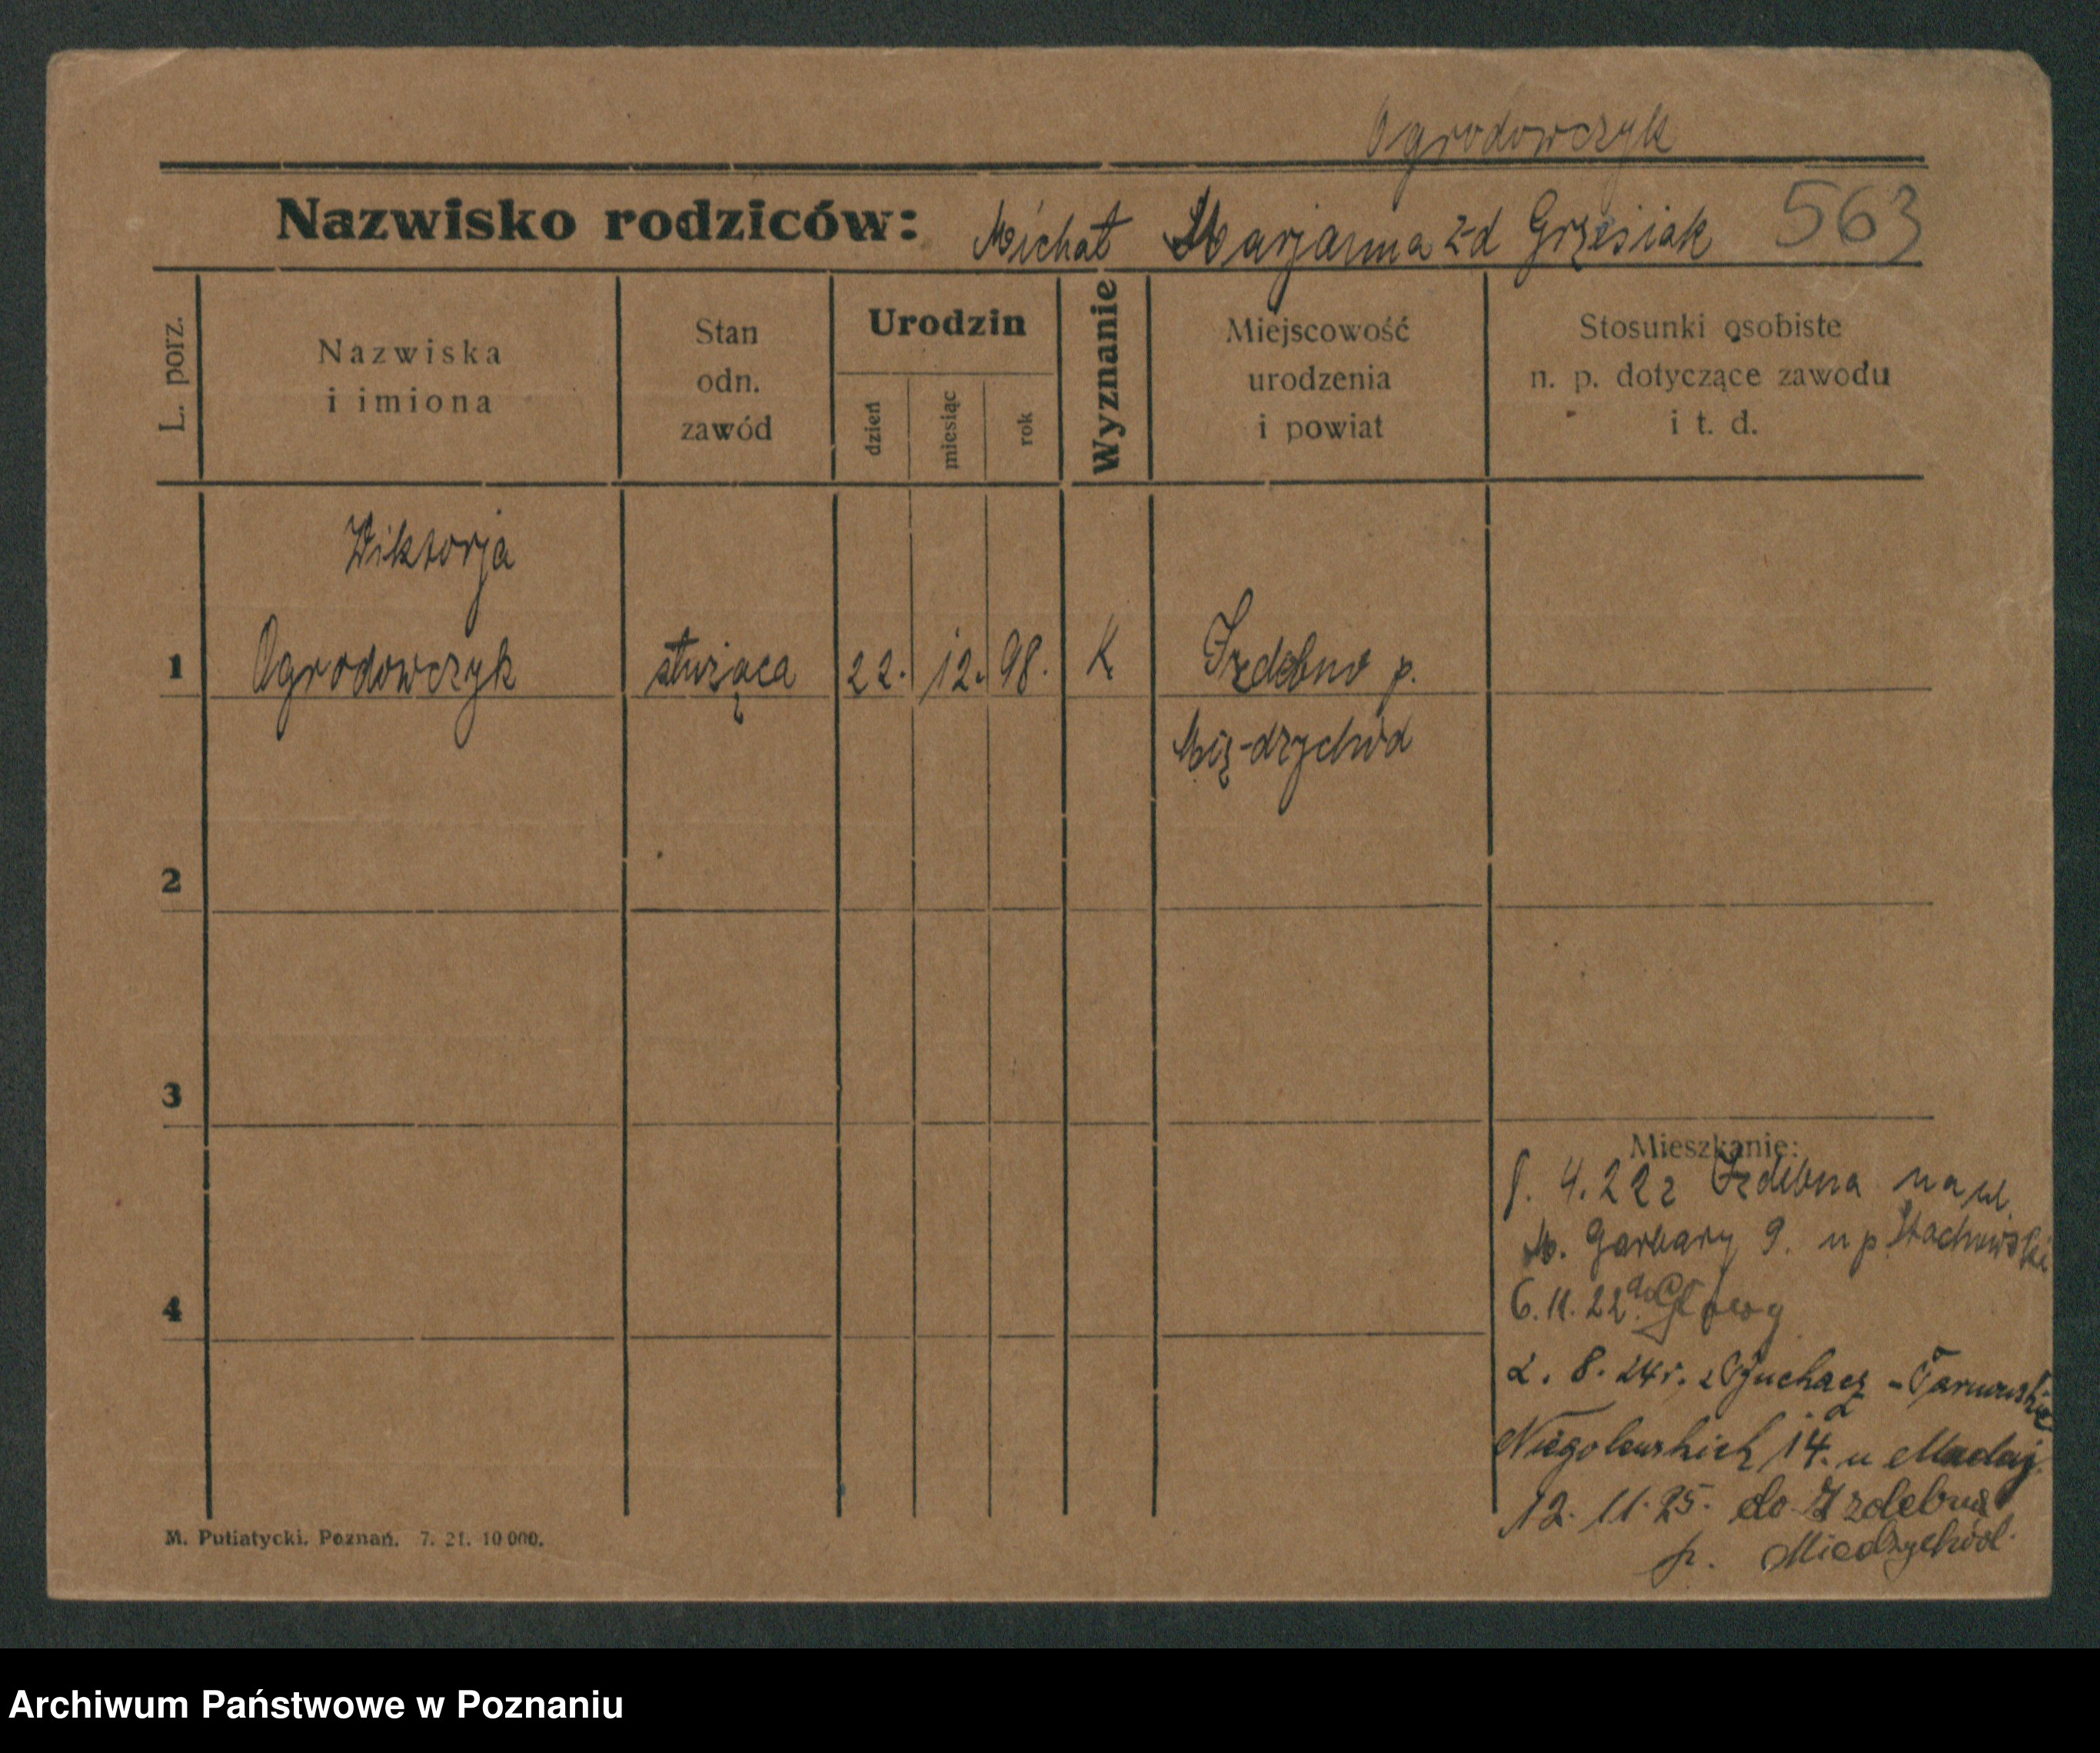 Ogrodowczyk
Nazwisko rodziców: Michał Marjanna z-d Grzesiak 563
L. porz.
Nazwiska
i imiona
Stan
odn.
zawód
Urodzin
dzień
miesiąc
rok
Wyznanie
Miejscowość
urodzenia
i powiat
Stosunki osobiste
n. p. dotyczące zawodu
i t. d.
Wiktorja
1 Ogrodowczyk służąca 22. 12. 98. K Izdebno p.
Mię-dzychód
2
3
Mieszkanie:
4. 22 z Izdebna na ul.
M. Garbary 9. u p.
4
6. 11. 22
2. 8. 24 r.
Niegolewskich 14. u
12. 11. 25. do Izdebna
p. Miedzychód.
M. Putiatycki. Poznań. 7. 21. 10 000.
Archiwum Państwowe w Poznaniu